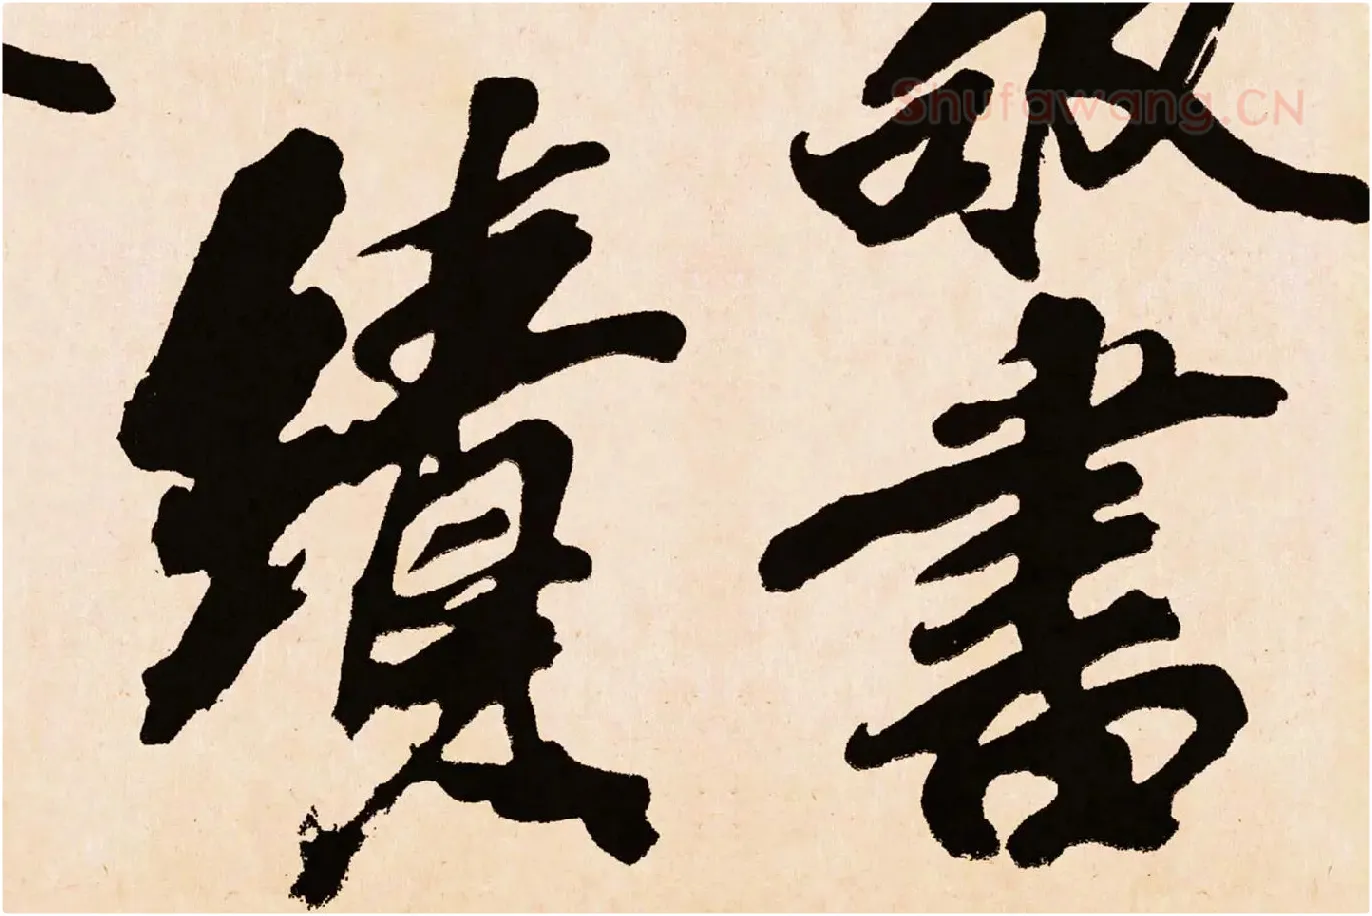 書
績
Shufawang.CN